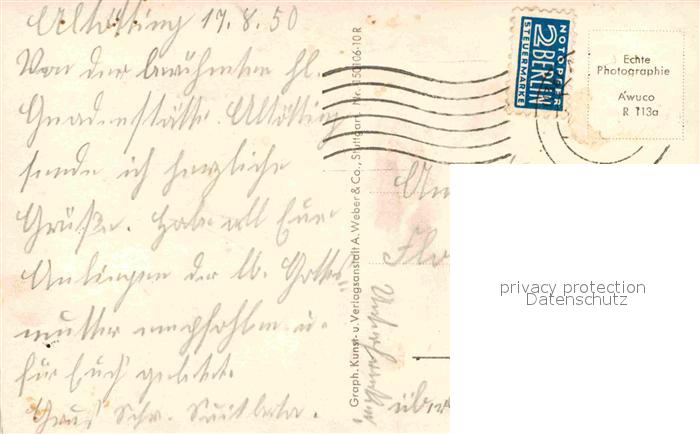 Altötting 17.8.50
Von der berühmten hl.
Gnadenstätte Altötting
sende ich herzliche
Grüße. Habe all Eure
Anliegen der lb. Gottes-
mutter empfohlen u.
für Euch gebetet.
Schw. Suitberta.
Graph. Kunst- u. Verlagsanstalt A. Weber & Co., Stuttgart Nr. 150106-10 R
NOTOPFER
2 BERLIN
STEUERMARKE
Echte
Photographie
Awuco
R 113a
An
über
privacy protection
Datenschutz